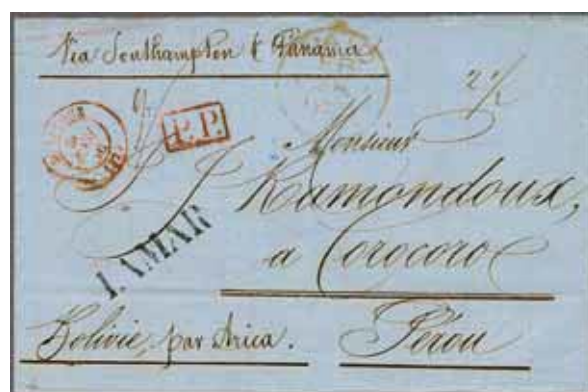 Via Southampton & Panama
2 1/2
P.P.
Monsieur
J. Ramondoux,
a Corocoro
LAMAR
Bolivie, par Arica. Pérou